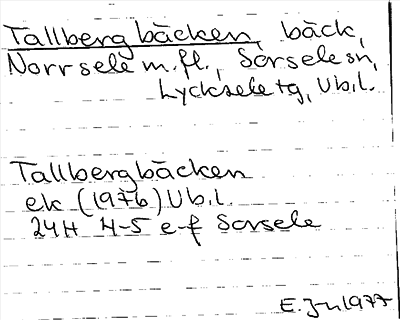 Tallbergbäcken, bäck,
Norrsele m.fl., Sorsele sn,
Lycksele tg, Vb.l.
Tallbergbäcken
ek (1976) Vb.l.
24H 4-5 e-f Sorsele
E. Jn 1977